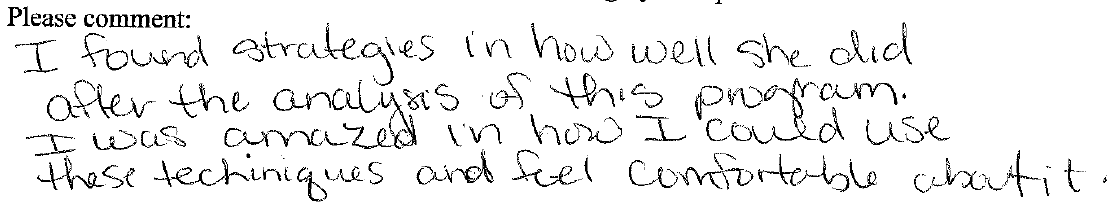 Please comment:
I found strategies in how well she did
after the analysis of this program.
I was amazed in how I could use
these techiniques and feel comfortable about it.